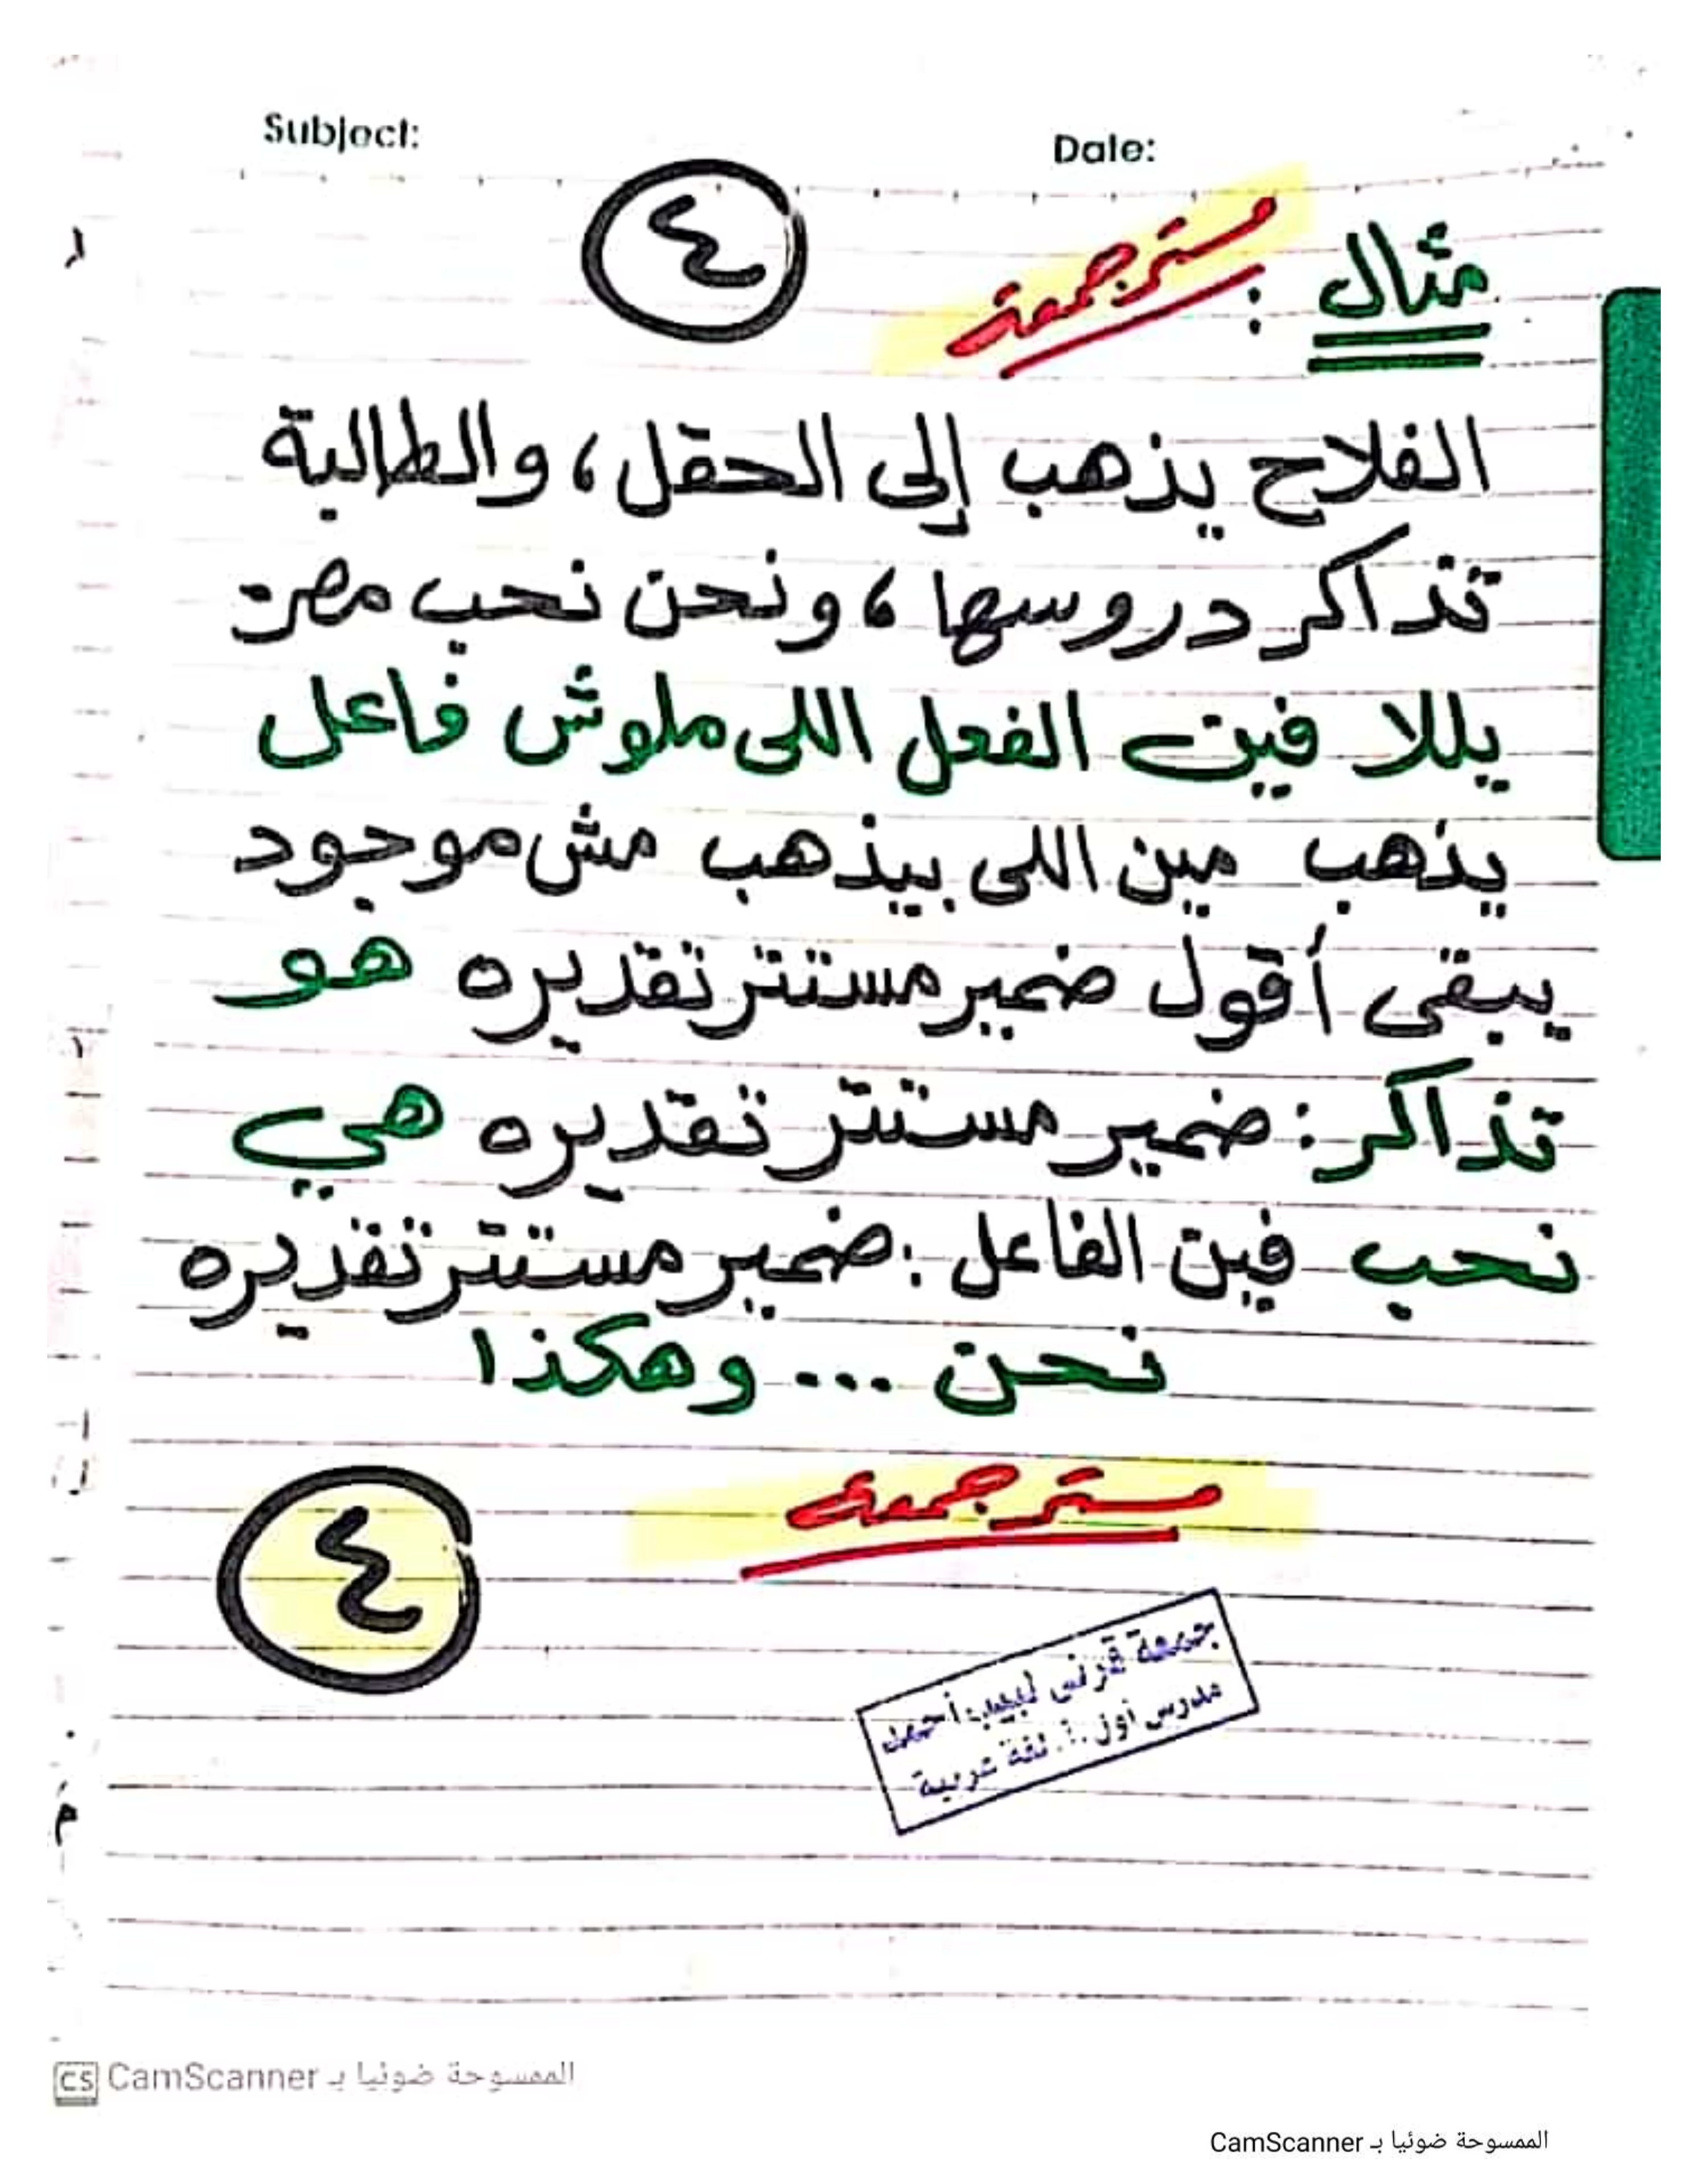 Subject:
Date:
٤
مثال : مستر جمعة
الفلاح يذهب إلى الحقل، والطالبة
تذاكر دروسها، ونحن نحب مصر
يللا فين الفعل اللى ملوش فاعل
يذهب مين اللى بيذهب مش موجود
يبقى أقول ضمير مستتر تقديره هو
تذاكر: ضمير مستتر تقديره هي
نحب فين الفاعل: ضمير مستتر تقديره
نحن ... وهكذا
مستر جمعة
٤
جمعة قرنى لبيب أحمد
مدرس أول أ. لغة عربية
CS CamScanner الممسوحة ضوئيا بـ
الممسوحة ضوئيا بـ CamScanner